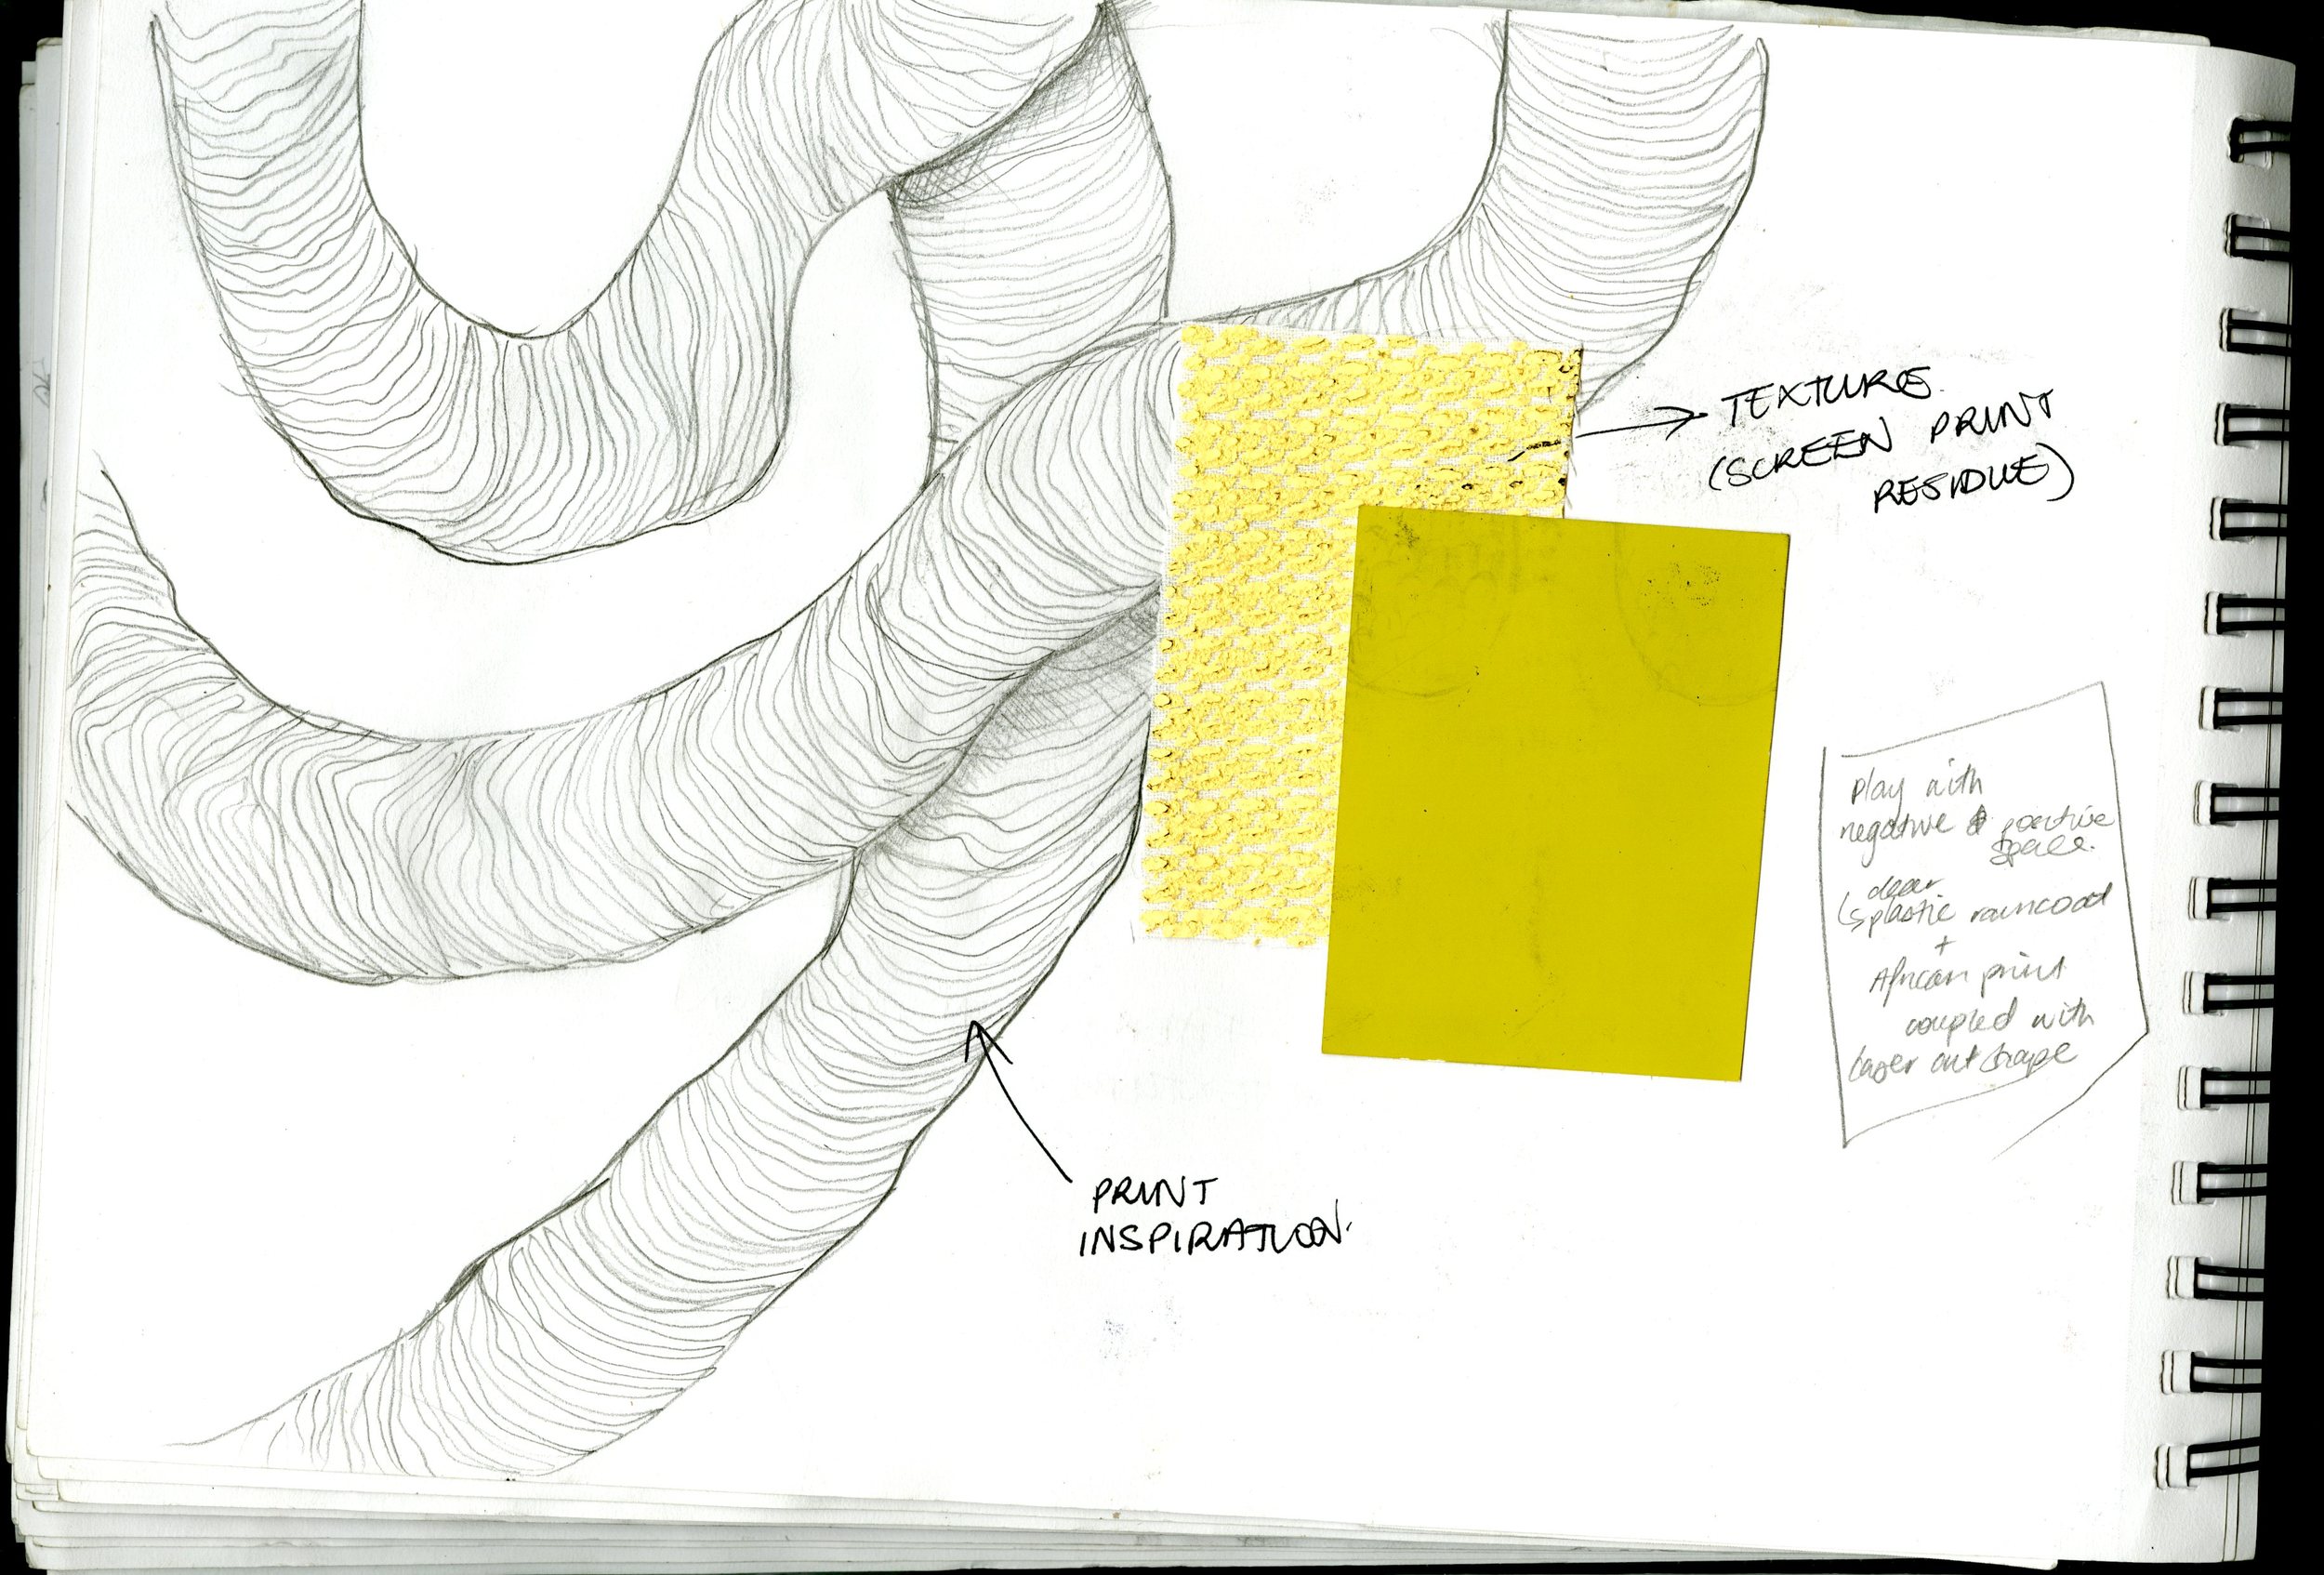 TEXTURE
(SCREEN PRINT
RESIDUE)
play with
negative & positive
space.
clear
plastic raincoat
+
African print
coupled with
laser cut shape
PRINT
INSPIRATION.